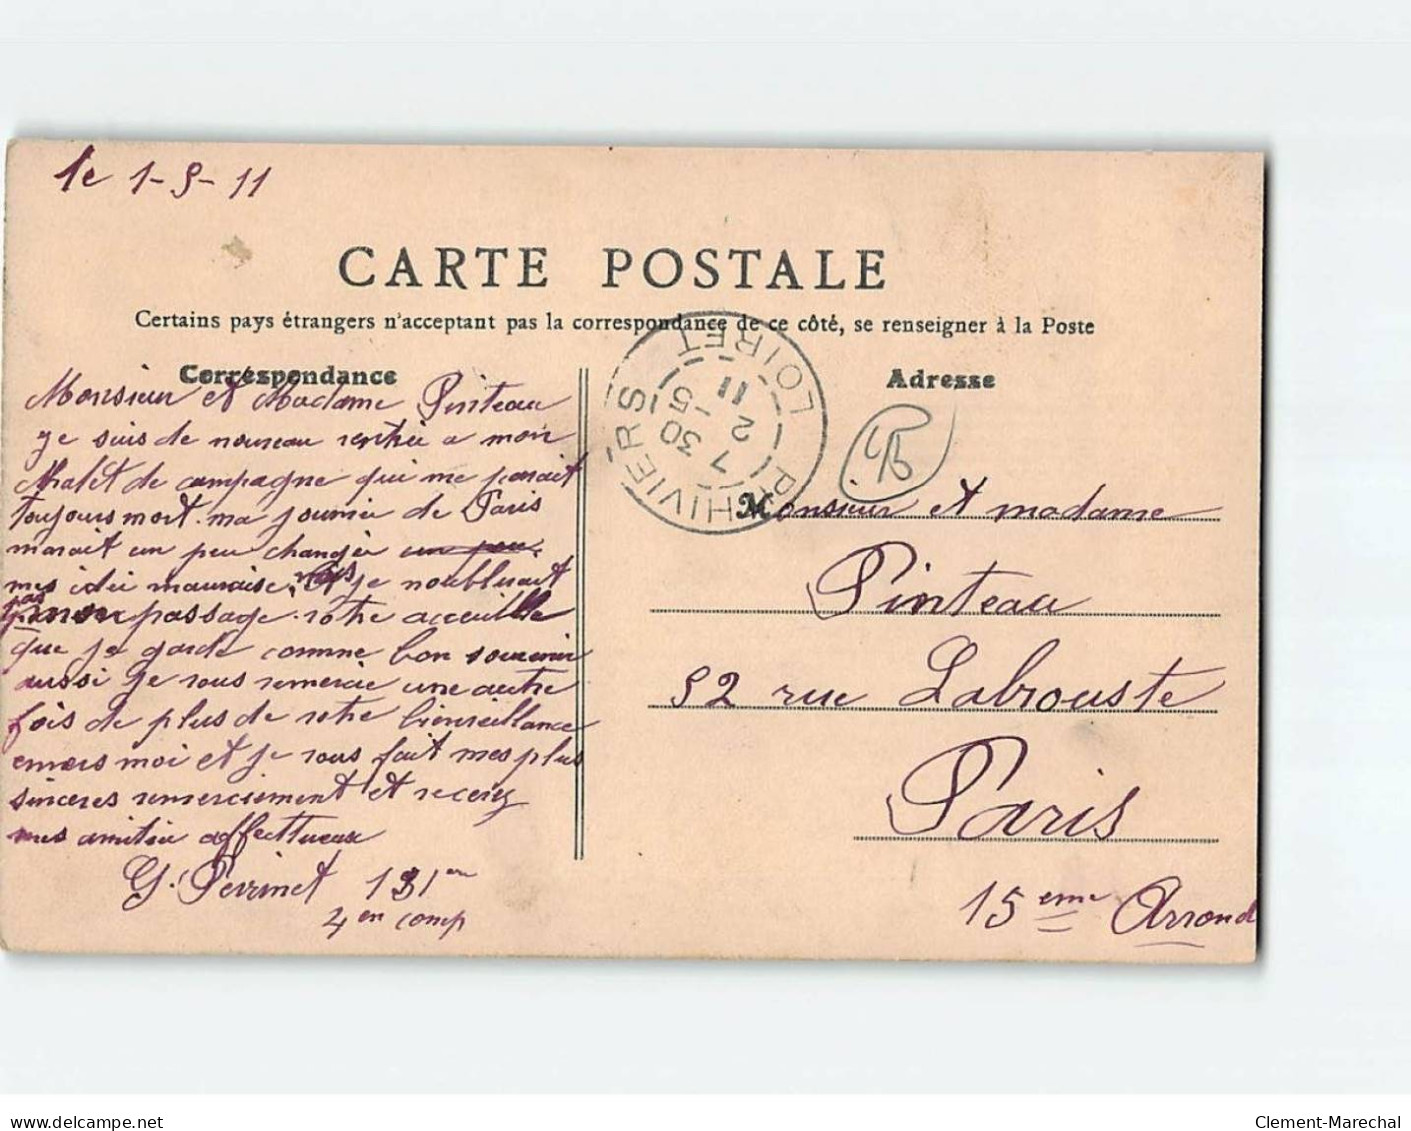 le 1-5-11
CARTE POSTALE
Certains pays étrangers n'acceptant pas la correspondance de ce côté, se renseigner à la Poste
Correspondance
Monsieur et Madame Pinteau
je suis de nouveau rentrée a mon
Chalet de campagne qui me parait
toujours mort. ma journée de Paris
marait un peu changée un peu
mes idée mauvaise, mais je noublirait
pas mon passage. votre acceuille
que je garde comme bon souvenir
aussi je vous remercie une autre
fois de plus de votre bienveillance
envers moi et je vous fait mes plus
sinceres remerciement et recevez
mes amitiée affectueux
G. Perrinet 131 em
4 em comp
PITHIVIERS
LOIRET
7 30
2 -5
11
Adresse
Monsieur et madame
Pinteau
52 rue Labrouste
Paris
15 eme Arrond
delcampe.net
Clement-Marechal